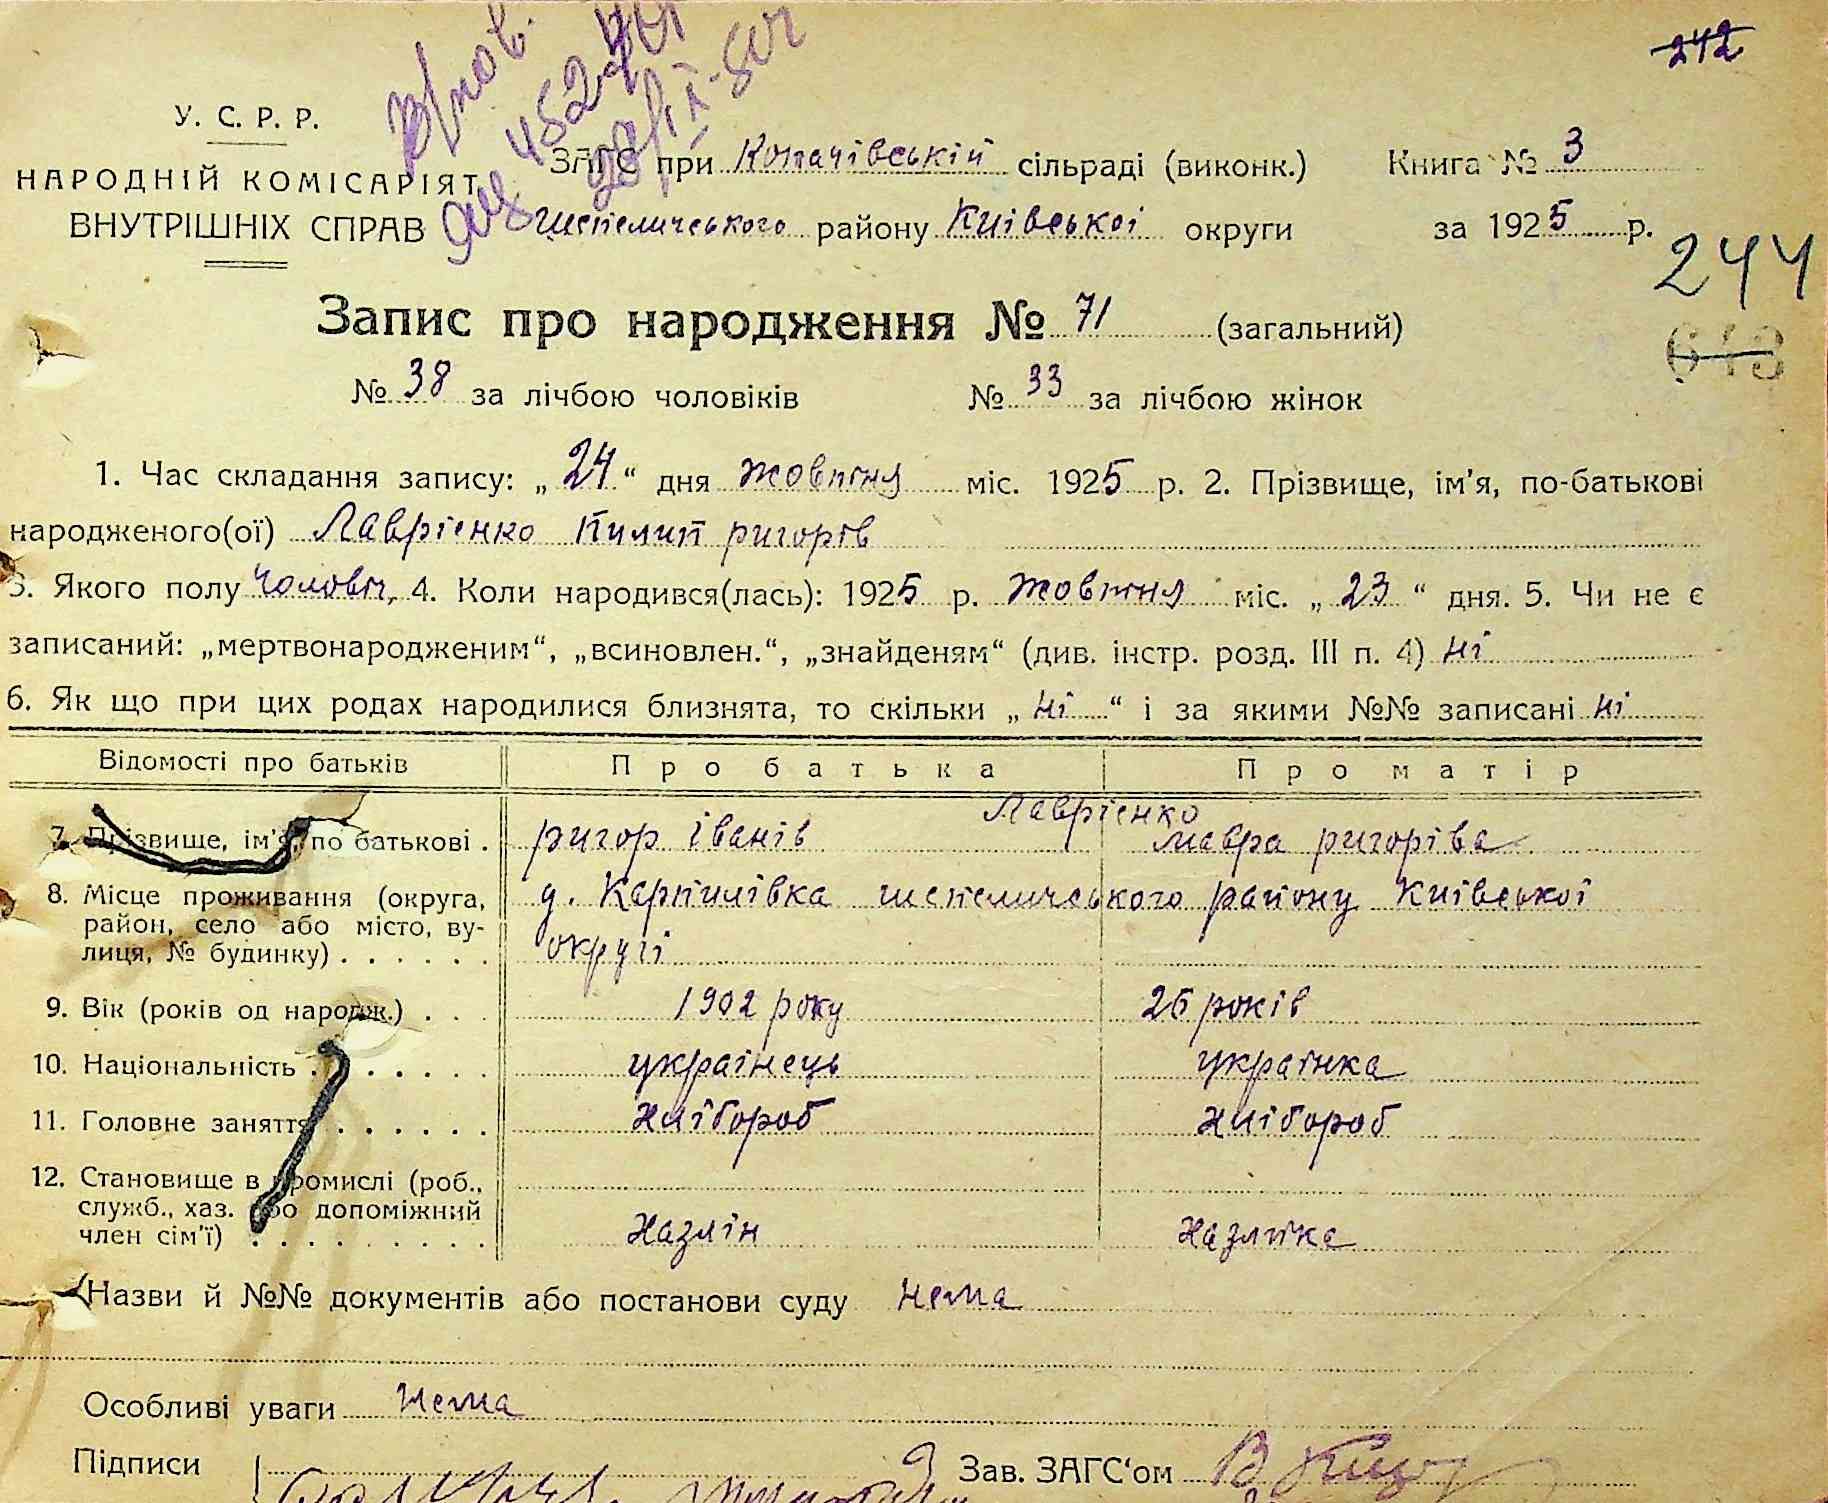 242
У. С. Р. Р.
НАРОДНІЙ КОМІСАРІЯТ
ВНУТРІШНІХ СПРАВ
ЗАГС при Копачівській сільраді (виконк.) Книга № 3
Шепеличського району Київської округи за 1925 р.
244
Запис про народження № 71 (загальний)
643
№ 38 за лічбою чоловіків № 33 за лічбою жінок
1. Час складання запису: „24“ дня жовтня міс. 1925 р. 2. Прізвище, ім’я, по-батькові
народженого(ої) Лаврієнко Пилип ригорів
3. Якого полу чоловіч. 4. Коли народився(лась): 1925 р. жовтня міс. „23“ дня. 5. Чи не є
записаний: „мертвонародженим“, „всиновлен.“, „знайденям“ (див. інстр. розд. III п. 4) ні
6. Як що при цих родах народилися близнята, то скільки „ні“ і за якими №№ записані ні
Відомості про батьків Про батька Про матір
Лаврієнко
7. Прізвище, ім’я, по батькові . ригор іванів мавра ригорівa
8. Місце проживання (округа, д. Карпилівка шепеличського району Київської
район, село або місто, ву-
лиця, № будинку) . . . . . . округі
9. Вік (років од народж.) . . . 1902 року 26 років
10. Національність . . . . . . . українець українка
11. Головне заняття . . . . . . хлібороб хлібороб
12. Становище в промислі (роб.,
служб., хаз. або допоміжний
член сім’ї) . . . . . . . . . хазяін хазяйка
Назви й №№ документів або постанови суду нема
Особливі уваги нема
Підписи Зав. ЗАГС‘ом